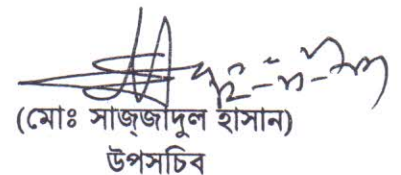 (মোঃ সাজ্জাদুল হাসান)
উপসচিব